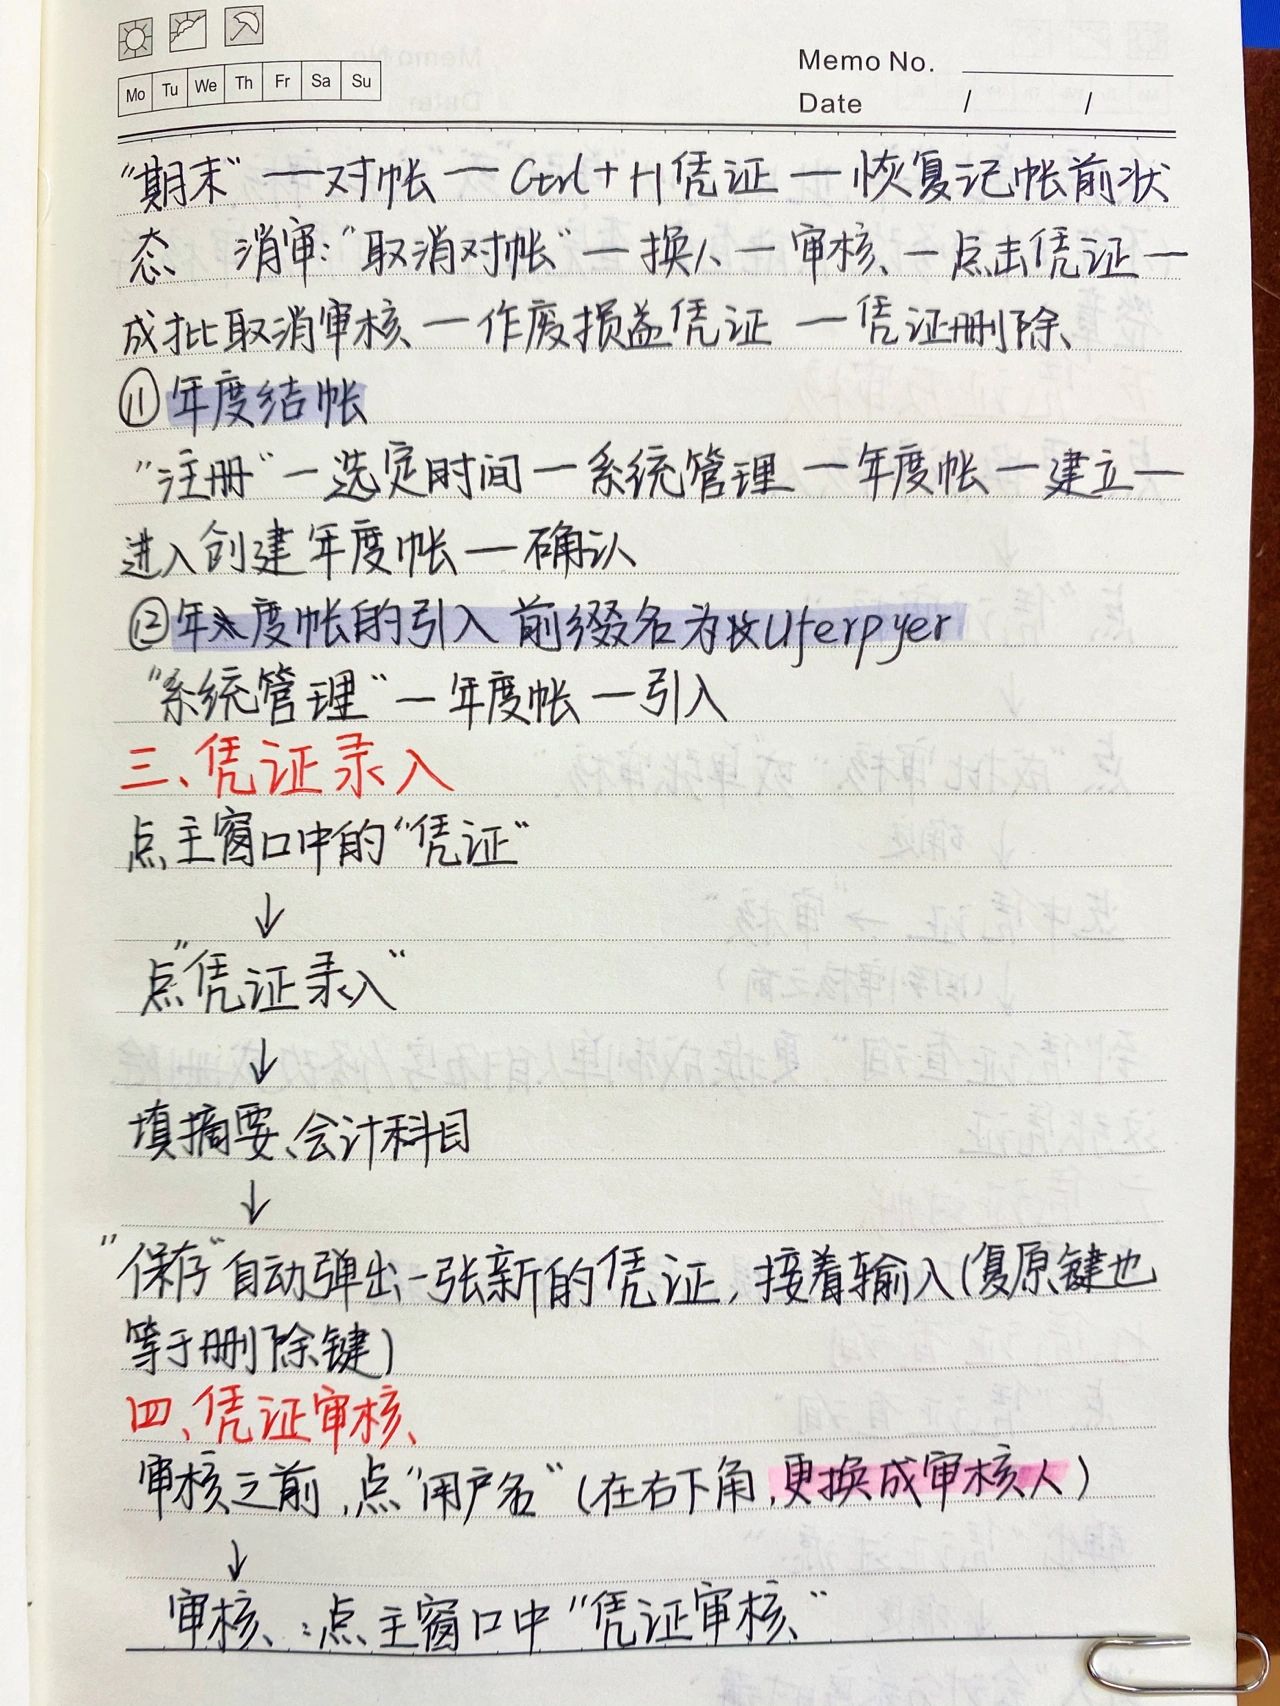 Mo Tu We Th Fr Sa Su
Memo No.
Date / /
"期末"—对帐—Ctrl+H凭证—恢复记帐前状
态 消审:"取消对帐"—换人—审核—点击凭证—
成批取消审核—作废损益凭证—凭证删除
⑪年度结帐
"注册"—选定时间—系统管理—年度帐—建立—
进入创建年度帐—确认
⑫年度帐的引入 前缀名为Uferpyer
"系统管理"—年度帐—引入
三、凭证录入
点主窗口中的"凭证"
↓
点"凭证录入"
↓
填摘要、会计科目
↓
"保存"自动弹出一张新的凭证,接着输入(复原键也
等于删除键)
四、凭证审核
审核之前,点"用户名"(在右下角,更换成审核人)
↓
审核:点主窗口中"凭证审核"